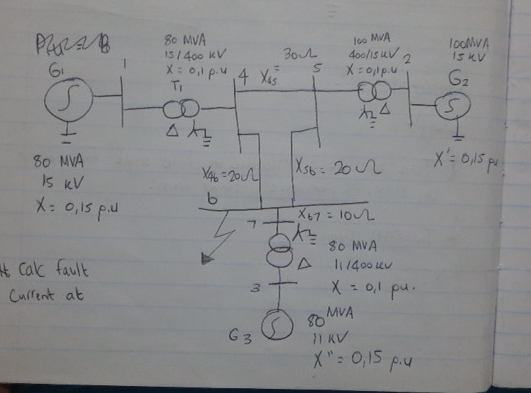 G1
80 MVA
15/400 kV
X = 0,1 p.u
T1
1
4
X45 = 30Ω
5
100 MVA
400/15 kV
X = 0,1 p.u
2
100 MVA
15 kV
G2
X' = 0,15 pu
80 MVA
15 kV
X = 0,15 p.u
X46 = 20Ω
X56 = 20Ω
6
X67 = 10Ω
7
80 MVA
11/400 kV
X = 0,1 pu.
3
G3
80 MVA
11 kV
X" = 0,15 p.u
Calc fault
Current at